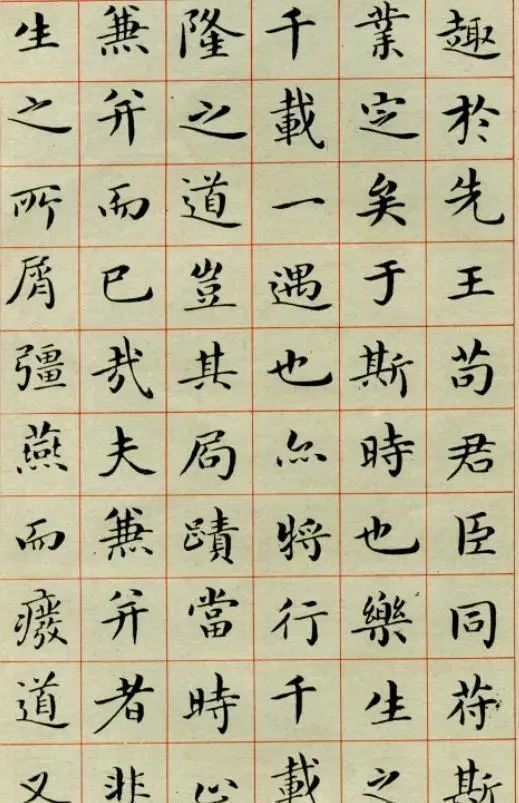 趣於先王苟君臣同苻斯
業定矣于斯時也樂生之
千載一遇也亦將行千載
隆之道豈其局蹟當時止
兼并而已哉夫兼并者非
生之所屑彊燕而癈道又